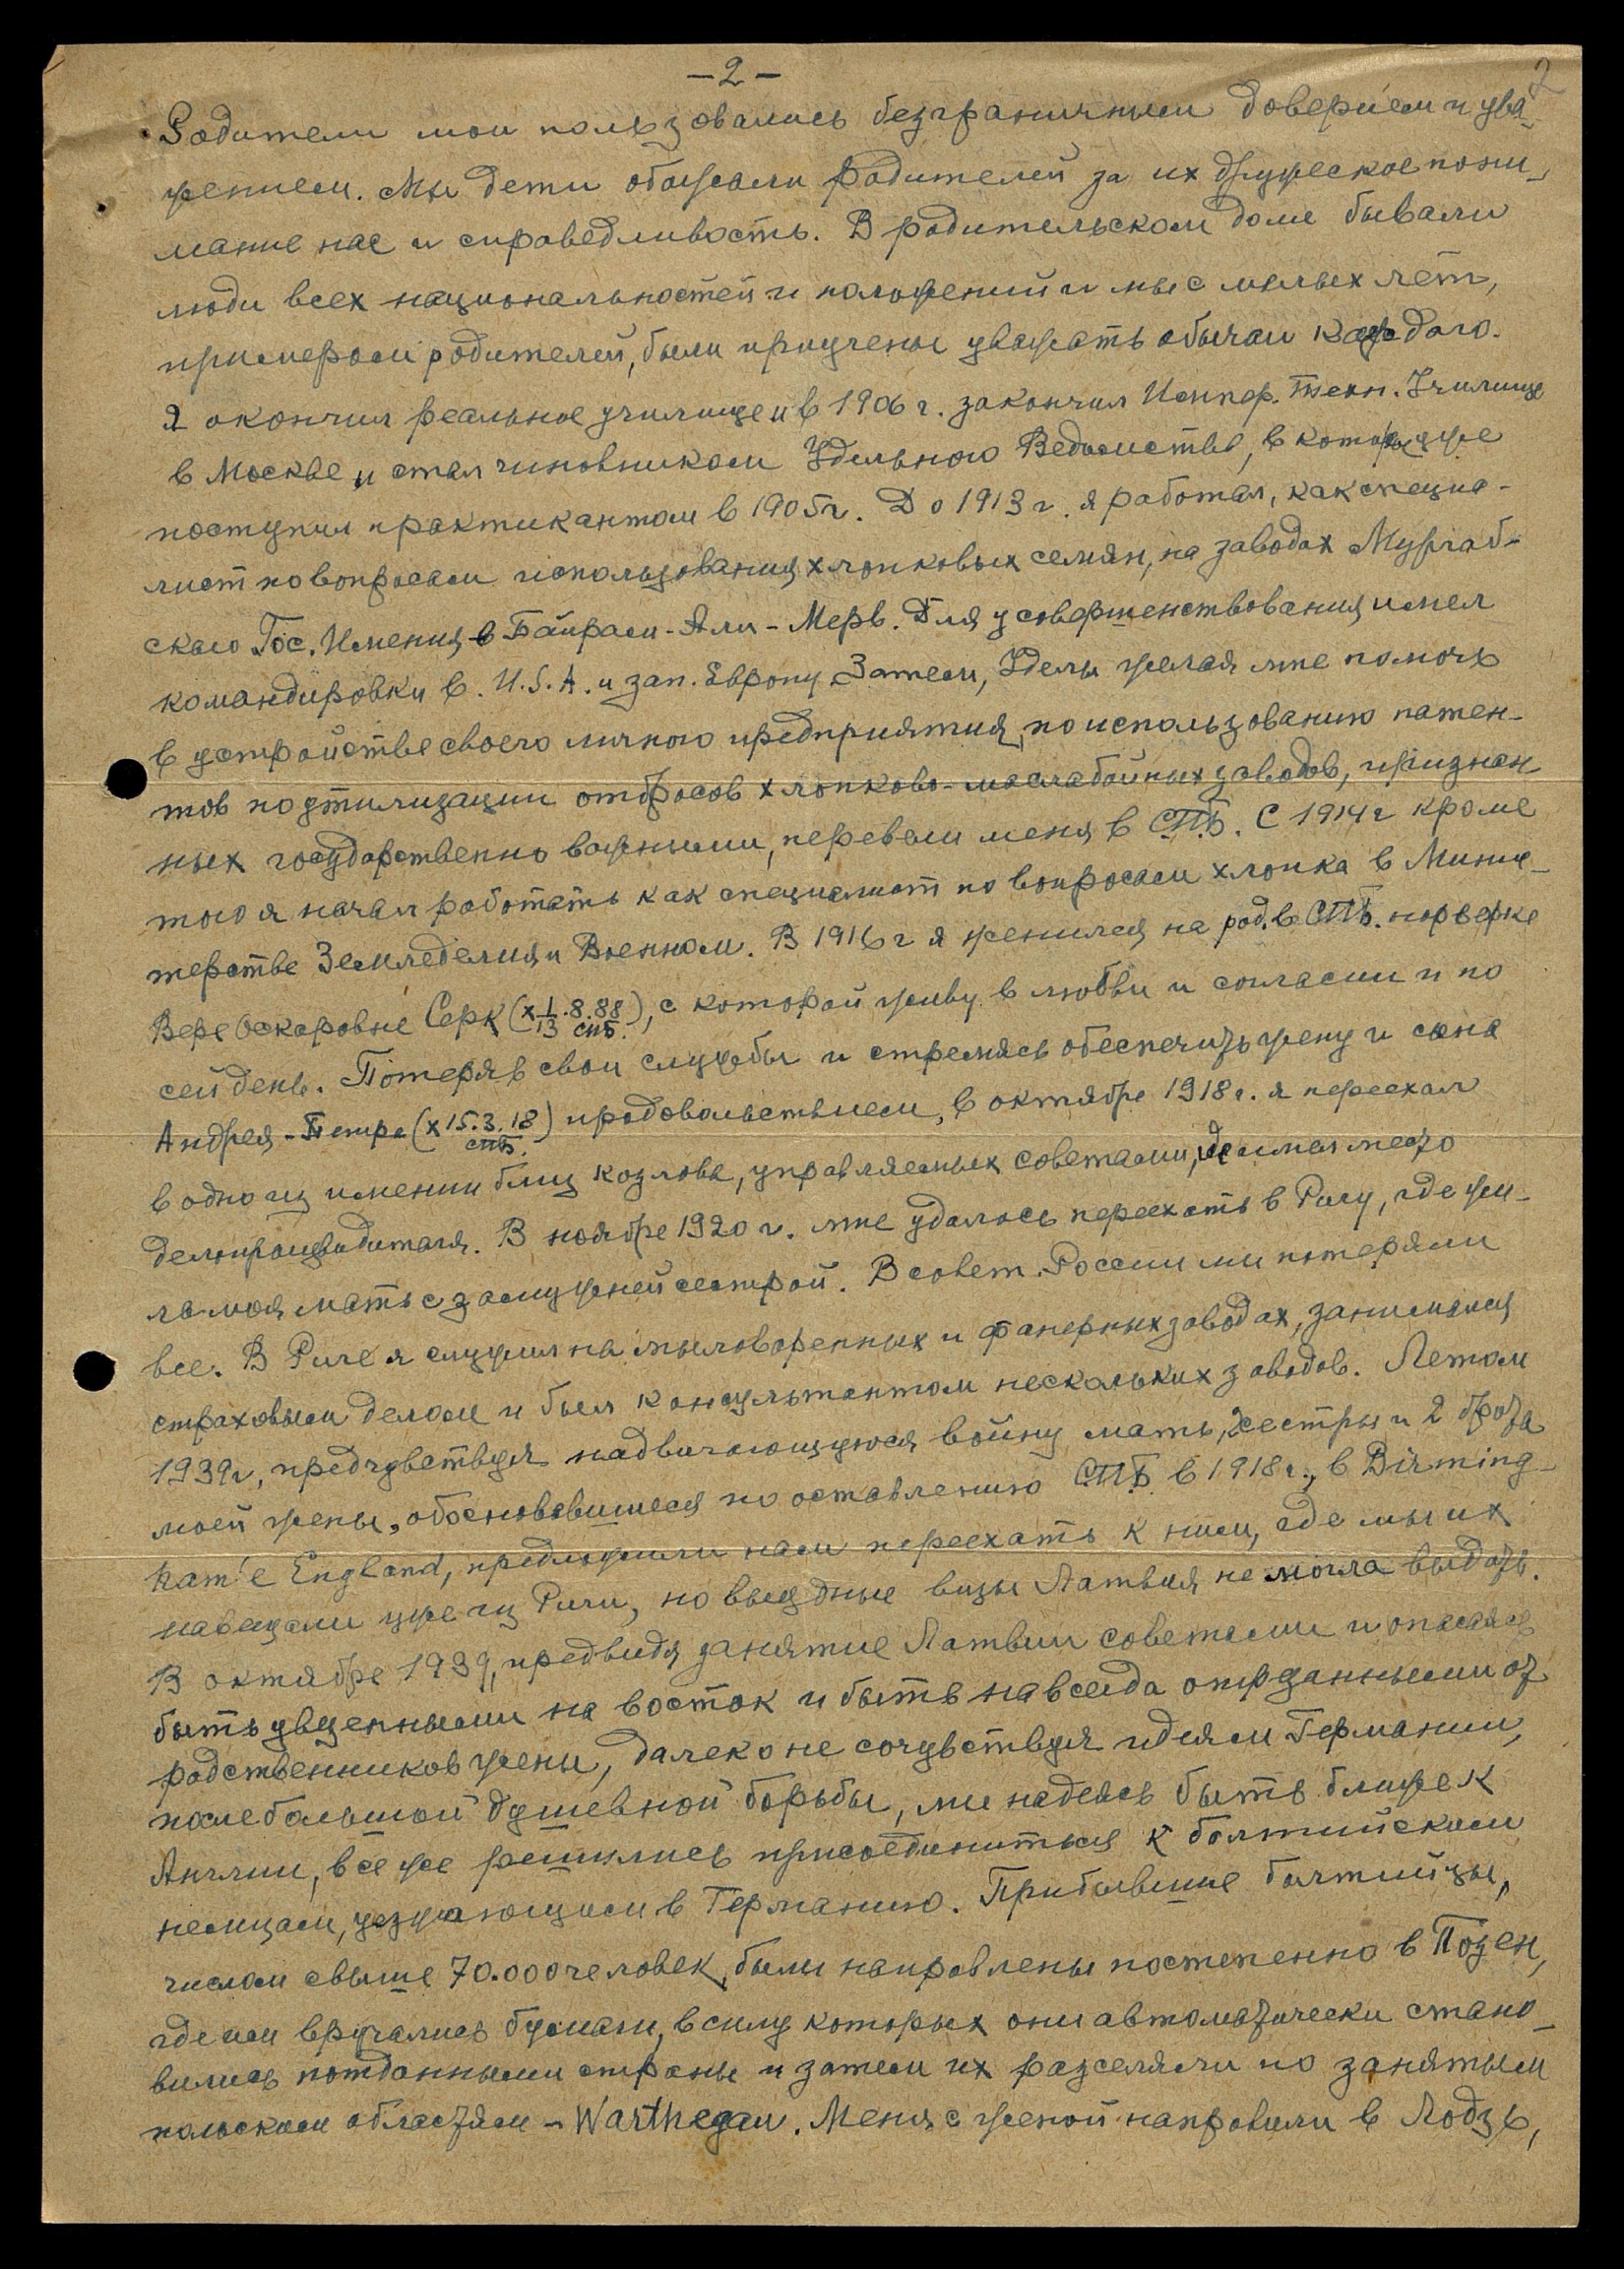 – 2 –
2
Родители мои пользовались безграничным доверием и ува-
жением. Мы дети обожали родителей за их дружеское пони-
мание нас и справедливость. В родительском доме бывали
люди всех национальностей и положений и мы с малых лет,
примером родителей, были приучены уважать обычаи каждаго.
Я окончил реальное училище и в 1906 г. закончил Импер. Техн. Училище
в Москве и стал чиновником Удельного Ведомства, в котором уже
поступил практикантом в 1905 г. До 1913 г. я работал, как специа-
лист по вопросам использования хлопковых семян, на заводах Мургаб-
скаго Гос. Имения в Байрам-Али-Мерв. Для усовершенствования имел
командировки в U.S.A. и зап. Европу. Затем, Уделы желая мне помочь
в устройстве своего личного предприятия, по использованию патен-
тов по утилизации отбросов хлопково-маслабойных заводов, признан-
ных государственно важными, перевели меня в СПБ. С 1914 г кроме
того я начал работать как специалист по вопросам хлопка в Минис-
терстве Земледелия и Военном. В 1916 г я женился на род. в СПБ. норвежке
Вере Оскаровне Серк (x 1/13.8.88 СПБ.), с которой живу в любви и согласии и по
сей день. Потеряв свои службы и стремясь обеспечить жену и сына
Андрея-Петра (x 15.3.18 СПБ.) продовольствием, в октябре 1918 г. я переехал
в одно из имений близ Козлова, управляемых советами, где имел место
делопроизводителя. В ноябре 1920 г. мне удалось переехать в Ригу, где жи-
ла моя мать с замужней сестрой. В совет. России ми потеряли
все. В Риге я служил на мыловаренных и фанерных заводах, занимался
страховым делом и был консультантом нескольких заводов. Летом
1939 г, предчувствуя надвигающуюся войну мать, 2 сестры и 2 брата
моей жены, обосновавшиеся по оставлению СПБ. в 1918 г., в Birming-
ham'е England, предложили нам переехать к ним, где мы их
навещали уже из Риги, но выездные визы Латвия не могла выдать.
В октябре 1939, предвидя занятие Латвии советами и опасаясь
быть увезенными на восток и быть навсегда оторванными от
родственников жены, далеко не сочувствуя идеям Германии,
после большой душевной борьбы, ми надеясь быть ближе к
Англии, все же решились присоединиться к болтийским
немцам, уезжающим в Германию. Прибывшие балтийцы,
числом свыше 70.000 человек, были направлены постепенно в Позен,
где им вручались бумаги, в силу которых они автоматически стано-
вились потданными страны и затем их разселяли по занятым
польским областям – Warthegau. Меня с женой направили в Лодзь,